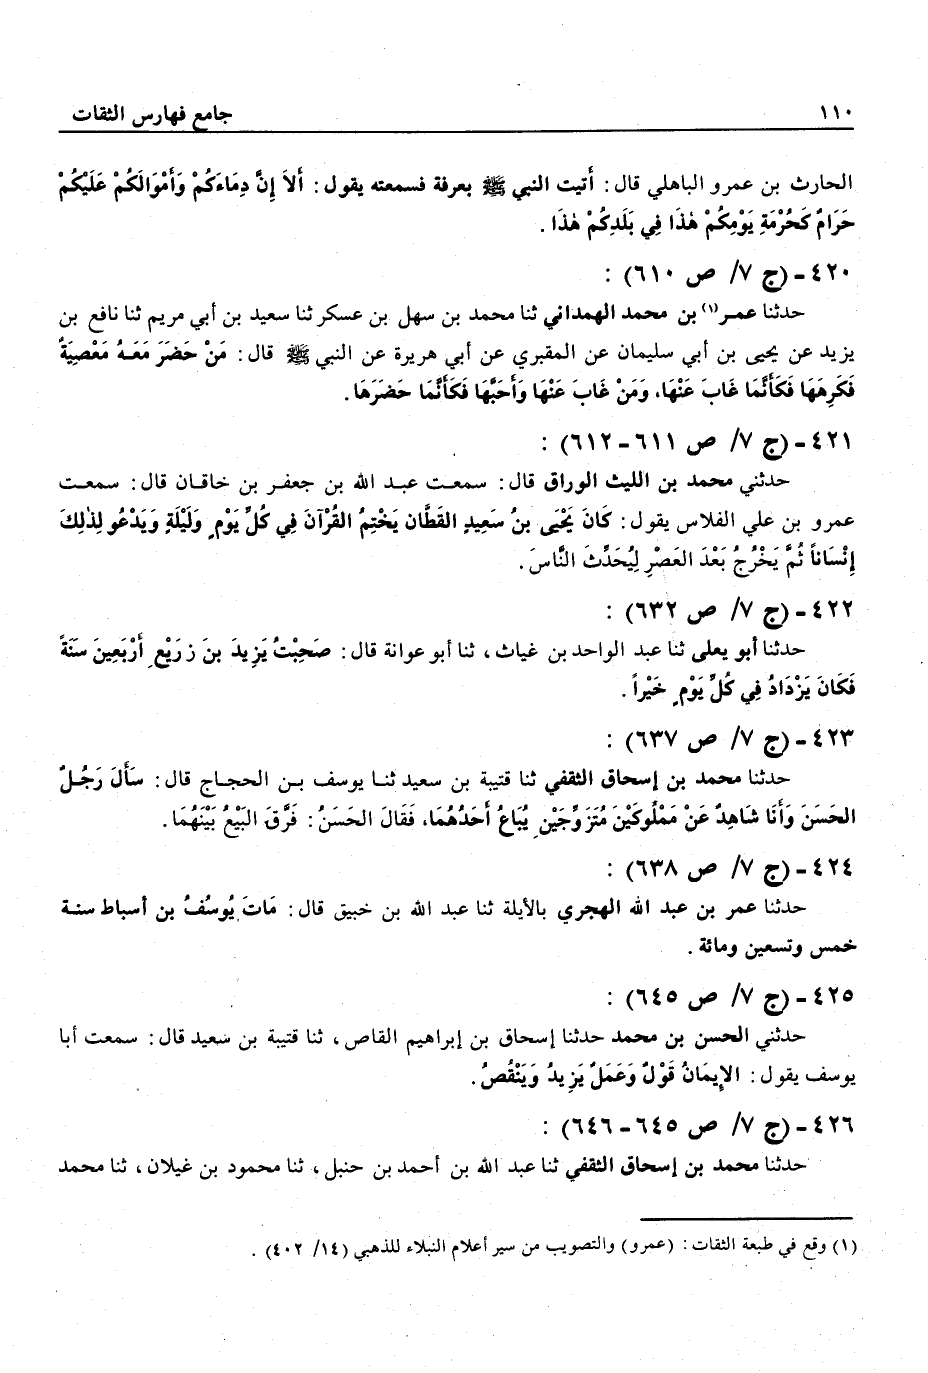 ١١٠ جامع فهارس الثقات
الحارث بن عمرو الباهلي قال : أَتيت النبي ﷺ بعرفة فسمعته يقول : أَلاَ إِنَّ دِمَاءَكُمْ وَأَمْوَالَكُمْ عَلَيْكُمْ
حَرَامٌ كَحُرْمَةِ يَوْمِكُمْ هٰذَا فِي بَلَدِكُمْ هٰذَا .
٤٢٠ - (ج ٧/ ص ٦١٠) :
حدثنا عمـر(١) بن محمد الهمداني ثنا محمد بن سهل بن عسكر ثنا سعيد بن أبي مريم ثنا نافع بن
يزيد عن يحيى بن أبي سليمان عن المقبري عن أبي هريرة عن النبي ﷺ قال : مَنْ حَضَرَ مَعَـهُ مَعْصِيَةٌ
فَكَرِهَهَا فَكَأَنَّمَا غَابَ عَنْهَا، وَمَنْ غَابَ عَنْهَا وَأَحَبَّهَا فَكَأَنَّمَا حَضَرَهَا .
٤٢١ - (ج ٧/ ص ٦١١ - ٦١٢) :
حدثني محمد بن الليث الوراق قال : سمعت عبـد الله بن جعفر بن خاقـان قال : سمعت
عمرو بن علي الفلاس يقول : كَانَ يَحْيَى بنُ سَعِيدٍ القَطَّان يَخْتِمُ القُرْآنَ فِي كُلِّ يَوْمٍ وَلَيْلَةٍ وَيَدْعُو لِذٰلِكَ
إِنْسَاناً ثُمَّ يَخْرُجُ بَعْدَ العَصْرِ لِيُحَدِّثَ النَّاسَ .
٤٢٢ - (ج ٧/ ص ٦٣٢) :
حدثنا أبو يعلى ثنا عبد الواحد بن غياث ، ثنا أبو عوانة قال : صَحِبْتُ يَزِيدَ بنَ زرَيْعٍ أَرْبَعِينَ سَنَةً
فَكَانَ يَزْدَادُ فِي كُلِّ يَوْمٍ خَيْراً .
٤٢٣ - (ج ٧/ ص ٦٣٧) :
حدثنا محمد بن إسحاق الثقفي ثنا قتيبة بن سعيد ثنـا يوسف بـن الحجـاج قال : سَأَلَ رَجُـلٌ
الحَسَنَ وَأَنَا شَاهِدٌ عَنْ مَمْلُوكَيْنِ مُتَزَوِّجَيْنِ يُبَاعُ أَحَدُهُمَا، فَقَالَ الحَسَنُ : فَرَّقَ البَيْعُ بَيْنَهُمَا .
٤٢٤ - (ج ٧/ ص ٦٣٨) :
حدثنا عمر بن عبد الله الهجري بالأيلة ثنا عبد الله بن خبيق قال : مَاتَ يُوسُفُ بن أسباط سنـة
خمس وتسعين ومائة .
٤٢٥ - (ج ٧/ ص ٦٤٥) :
حدثني الحسن بن محمد حدثنا إسحاق بن إبراهيم القاص ، ثنا قتيبة بن سعيد قال : سمعت أبا
يوسف يقول : الإِيمَانُ قَوْلٌ وَعَمَلٌ يَزِيدُ وَيَنْقُصُ .
٤٢٦ - (ج ٧/ ص ٦٤٥ - ٦٤٦) :
حدثنا محمد بن إسحاق الثقفي ثنا عبد الله بن أحمد بن حنبل ، ثنا محمود بن غيلان ، ثنا محمد
(١) وقع في طبعة الثقات : (عمرو) والتصويب من سير أعلام النبلاء للذهبي (١٤/ ٤٠٢) .